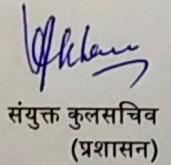 संयुक्त कुलसचिव
(प्रशासन)